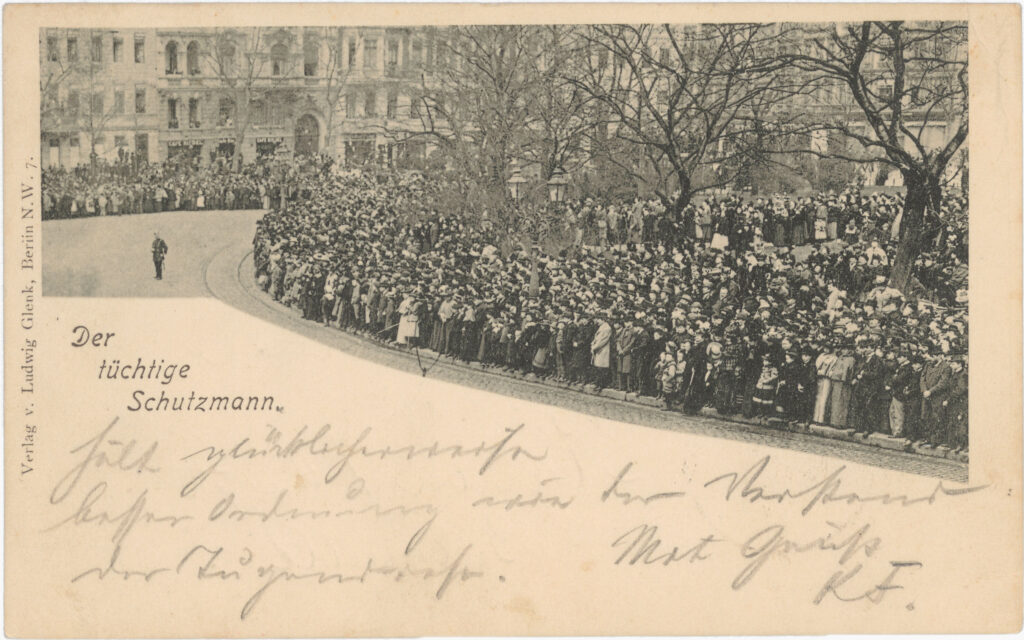 Der
tüchtige
Schutzmann.
hält glücklicherweise
besser Ordnung wie der Verstand
der Tugendrose.
Mit Gruß
K F.
Verlag v. Ludwig Glenk, Berlin N.W. 7.